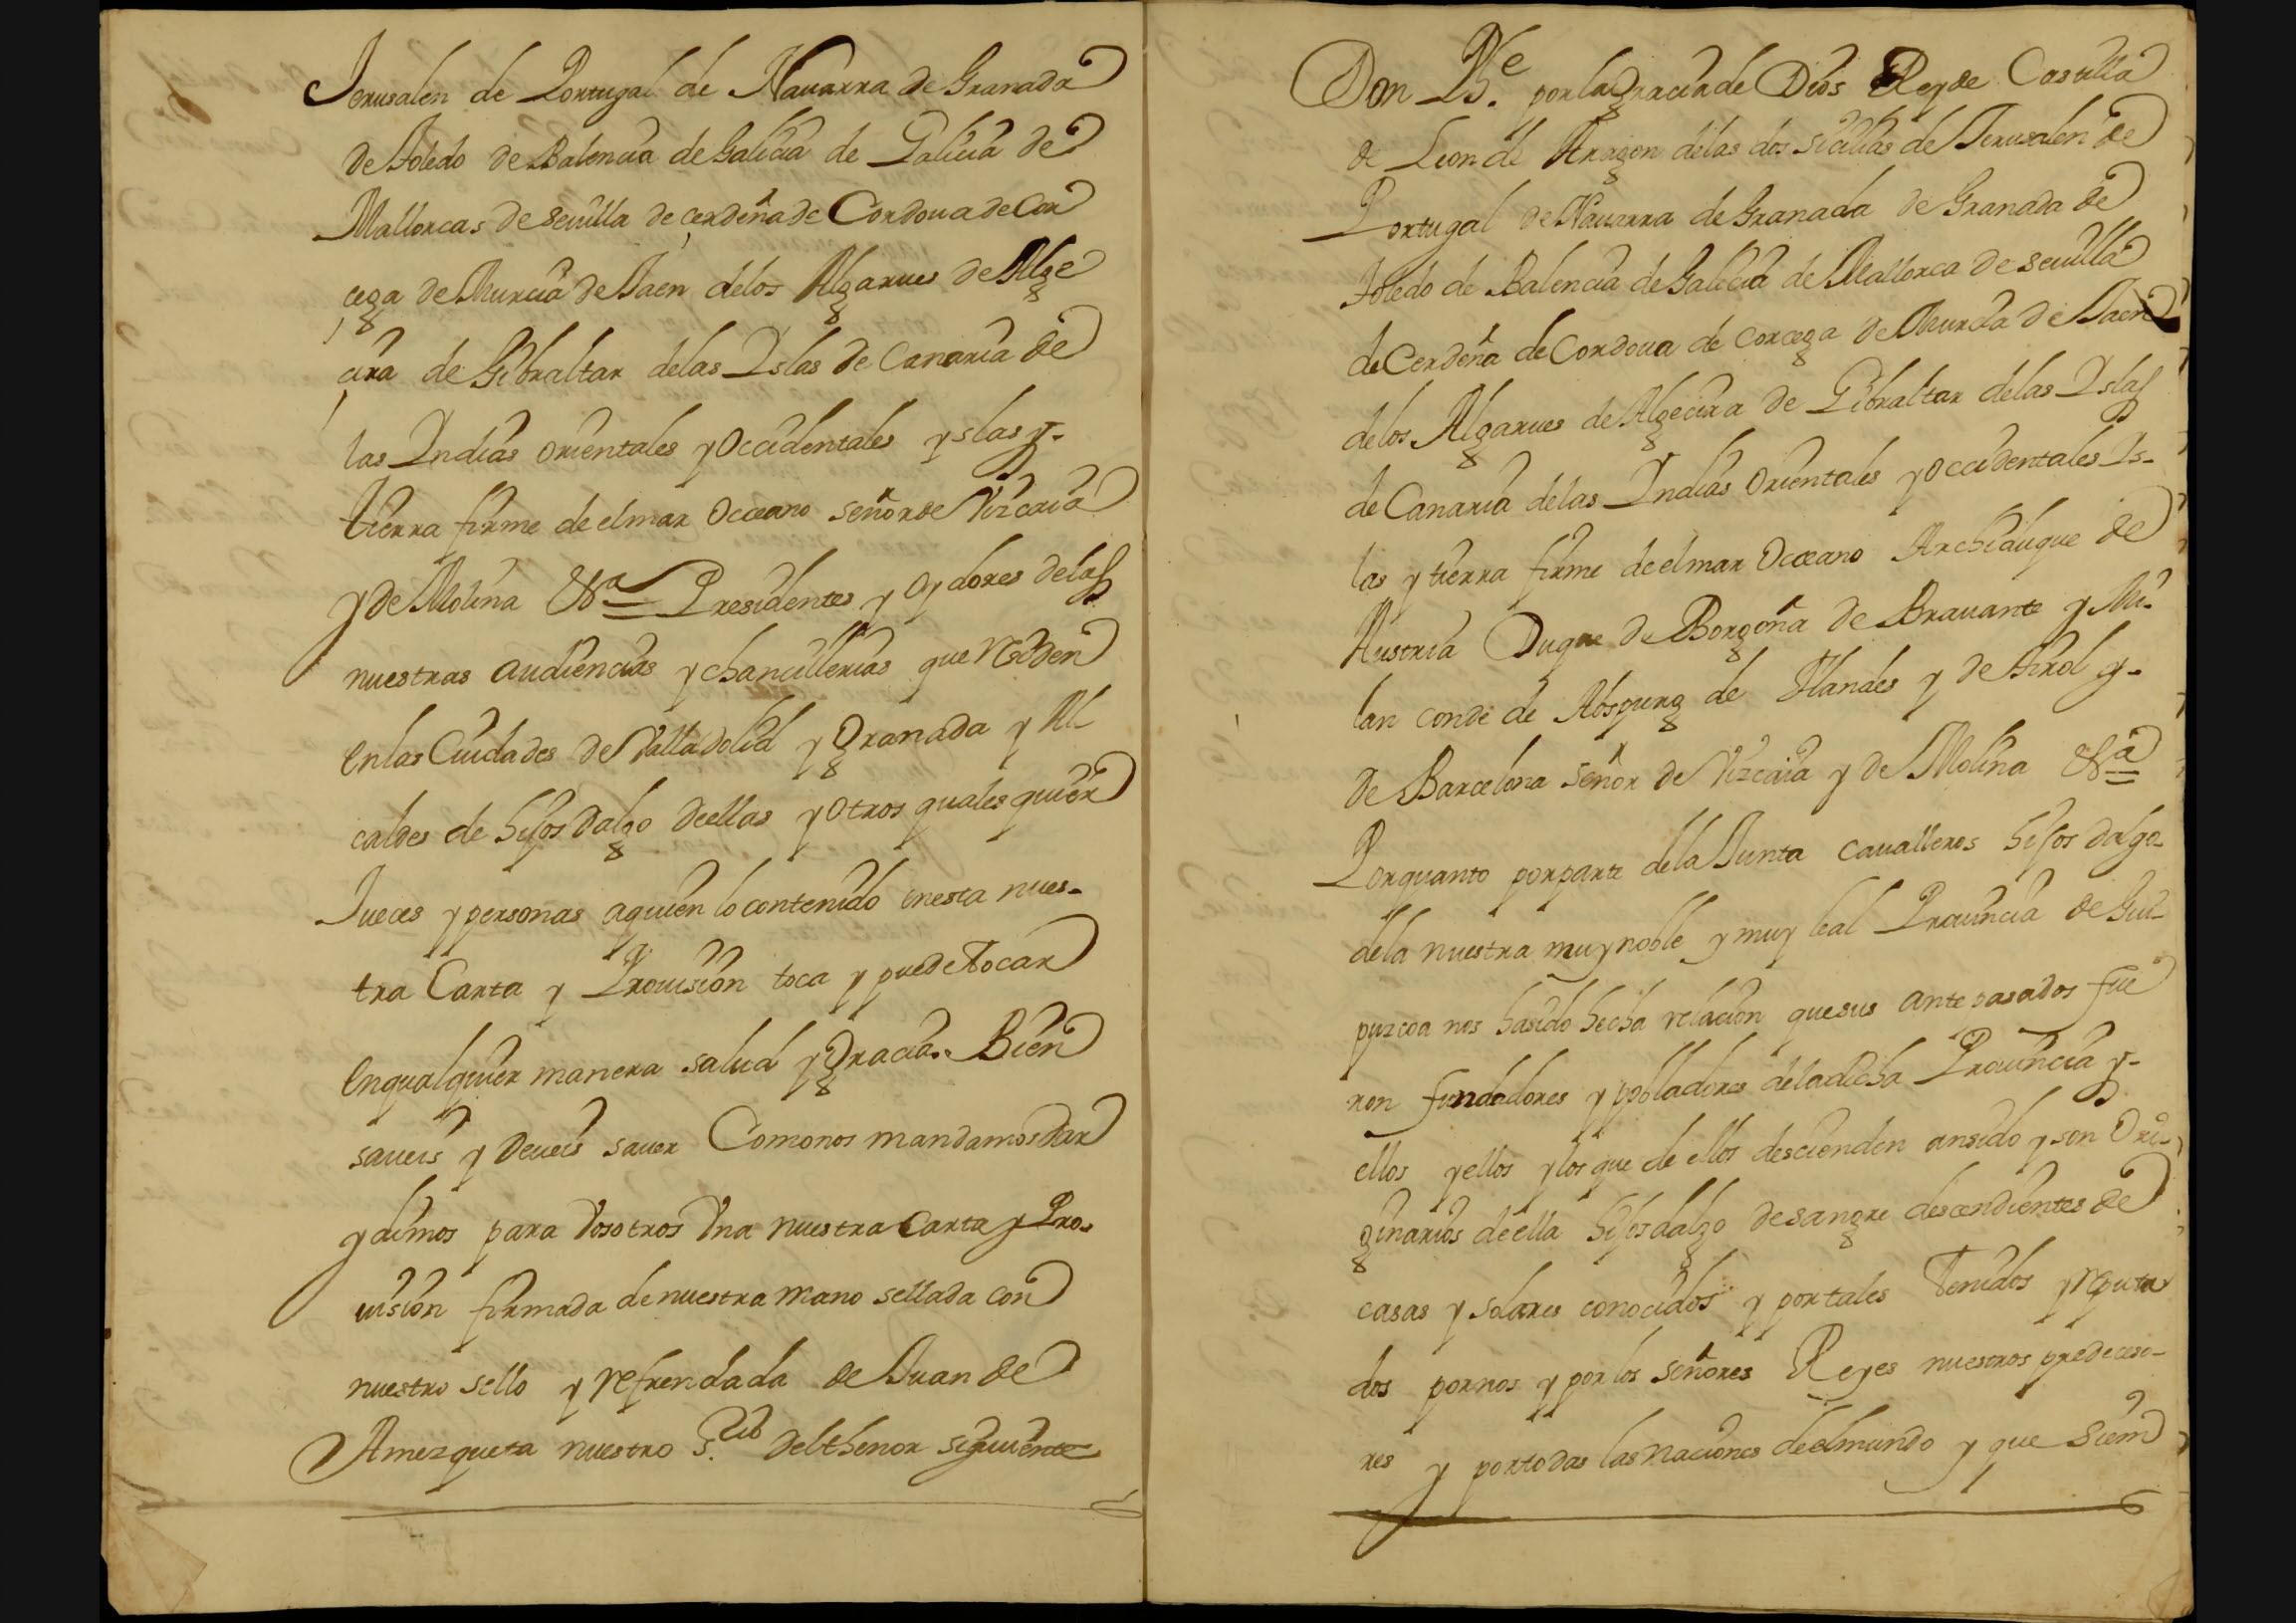 Jerusalen de Portugal de Nauarra de Granada
de Toledo de Balencia de Galicia de Galicia de
Mallorcas de seuilla de çerdeña de Cordoua de Cor
çega de Murcia de Jaen de los Algarues de Alge
çira de Gibraltar de las Yslas de Canaria de
las Yndias orientales y occidentales yslas y-
tierra firme de el mar occeano señor de Vizcaia
y de Molina &ª Presidentes y oydores de las
nuestras audiencias y chancillerias que residen
en las Ciudades de Valladolid y Granada y Al-
caldes de hijos dalgo de ellas y otros quales quier
Jueces y personas a quien lo contenido en esta nues-
tra Carta y Prouision toca y puede tocar
en qualquier manera salud y Gracia. Bien
saueis y deueis sauer Como nos mandamos dar
y dimos para Vosotros Vna nuestra Carta y Pro-
uision firmada de nuestra mano sellada con
nuestro sello y refrendada de Juan de
Amezqueta nuestro S.rio del thenor siguiente
Don Ph.e por la Gracia de Dios Rey de Castilla
de Leon de Aragon de las dos sicilias de Jerusalen de
Portugal de Nauarra de Granada de Granada de
Toledo de Balencia de Galicia de Mallorca de seuilla
de Cerdeña de Cordoua de Corcega de Murcia de Jaen
de los Algarues de Algecira de Gibraltar de las Yslas
de Canaria de las Yndias orientales y occidentales Ys-
las y tierra firme de el mar occeano Archiduque de
Austria Duque de Borgoña de Brauante y Mi-
lan conde de Abspurg de Flandes y de Tirol y-
de Barcelona señor de Vizcaia y de Molina &ª
Por quanto por parte de la Junta caualleros hijos dalgo-
de la nuestra muy noble y muy leal Prouincia de Gui-
puzcoa nos ha sido hecha relacion que sus ante pasados fue
ron fundadores y pobladores de la dicha Prouincia y-
ellos y ellos y los que de ellos descienden an sido y son ori-
ginarios de ella hijos dalgo de sangre descendientes de
casas y solares conocidos y por tales Tenidos y reputa
dos por nos y por los señores Reyes nuestros predeceso-
res y por todas las naciones de el mundo y que siem